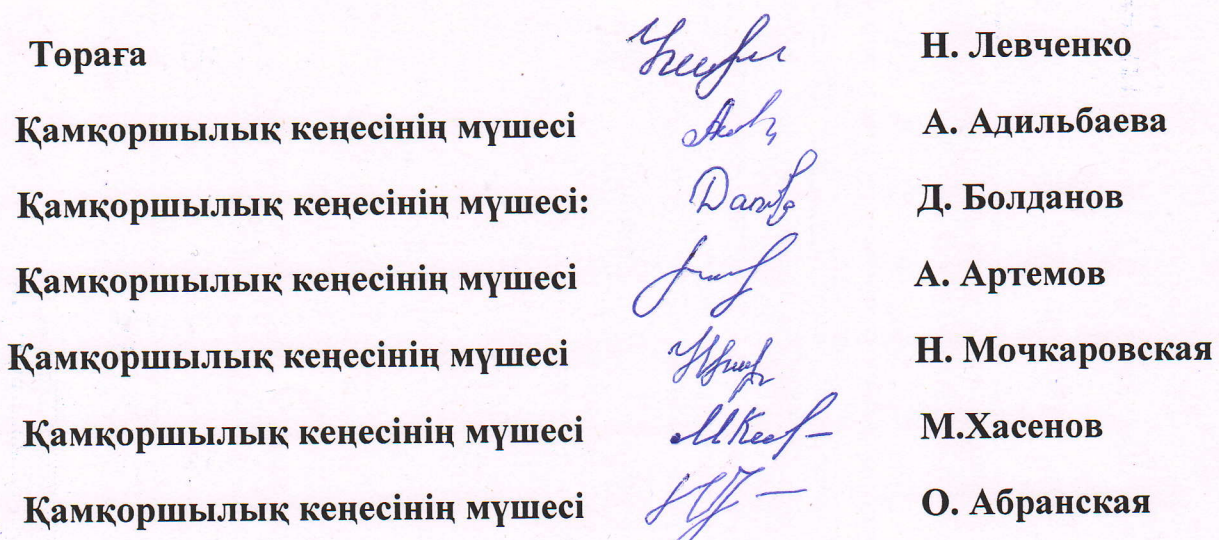 Төраға Н. Левченко
Қамқоршылық кеңесінің мүшесі А. Адильбаева
Қамқоршылық кеңесінің мүшесі: Д. Болданов
Қамқоршылық кеңесінің мүшесі А. Артемов
Қамқоршылық кеңесінің мүшесі Н. Мочкаровская
Қамқоршылық кеңесінің мүшесі М.Хасенов
Қамқоршылық кеңесінің мүшесі О. Абранская